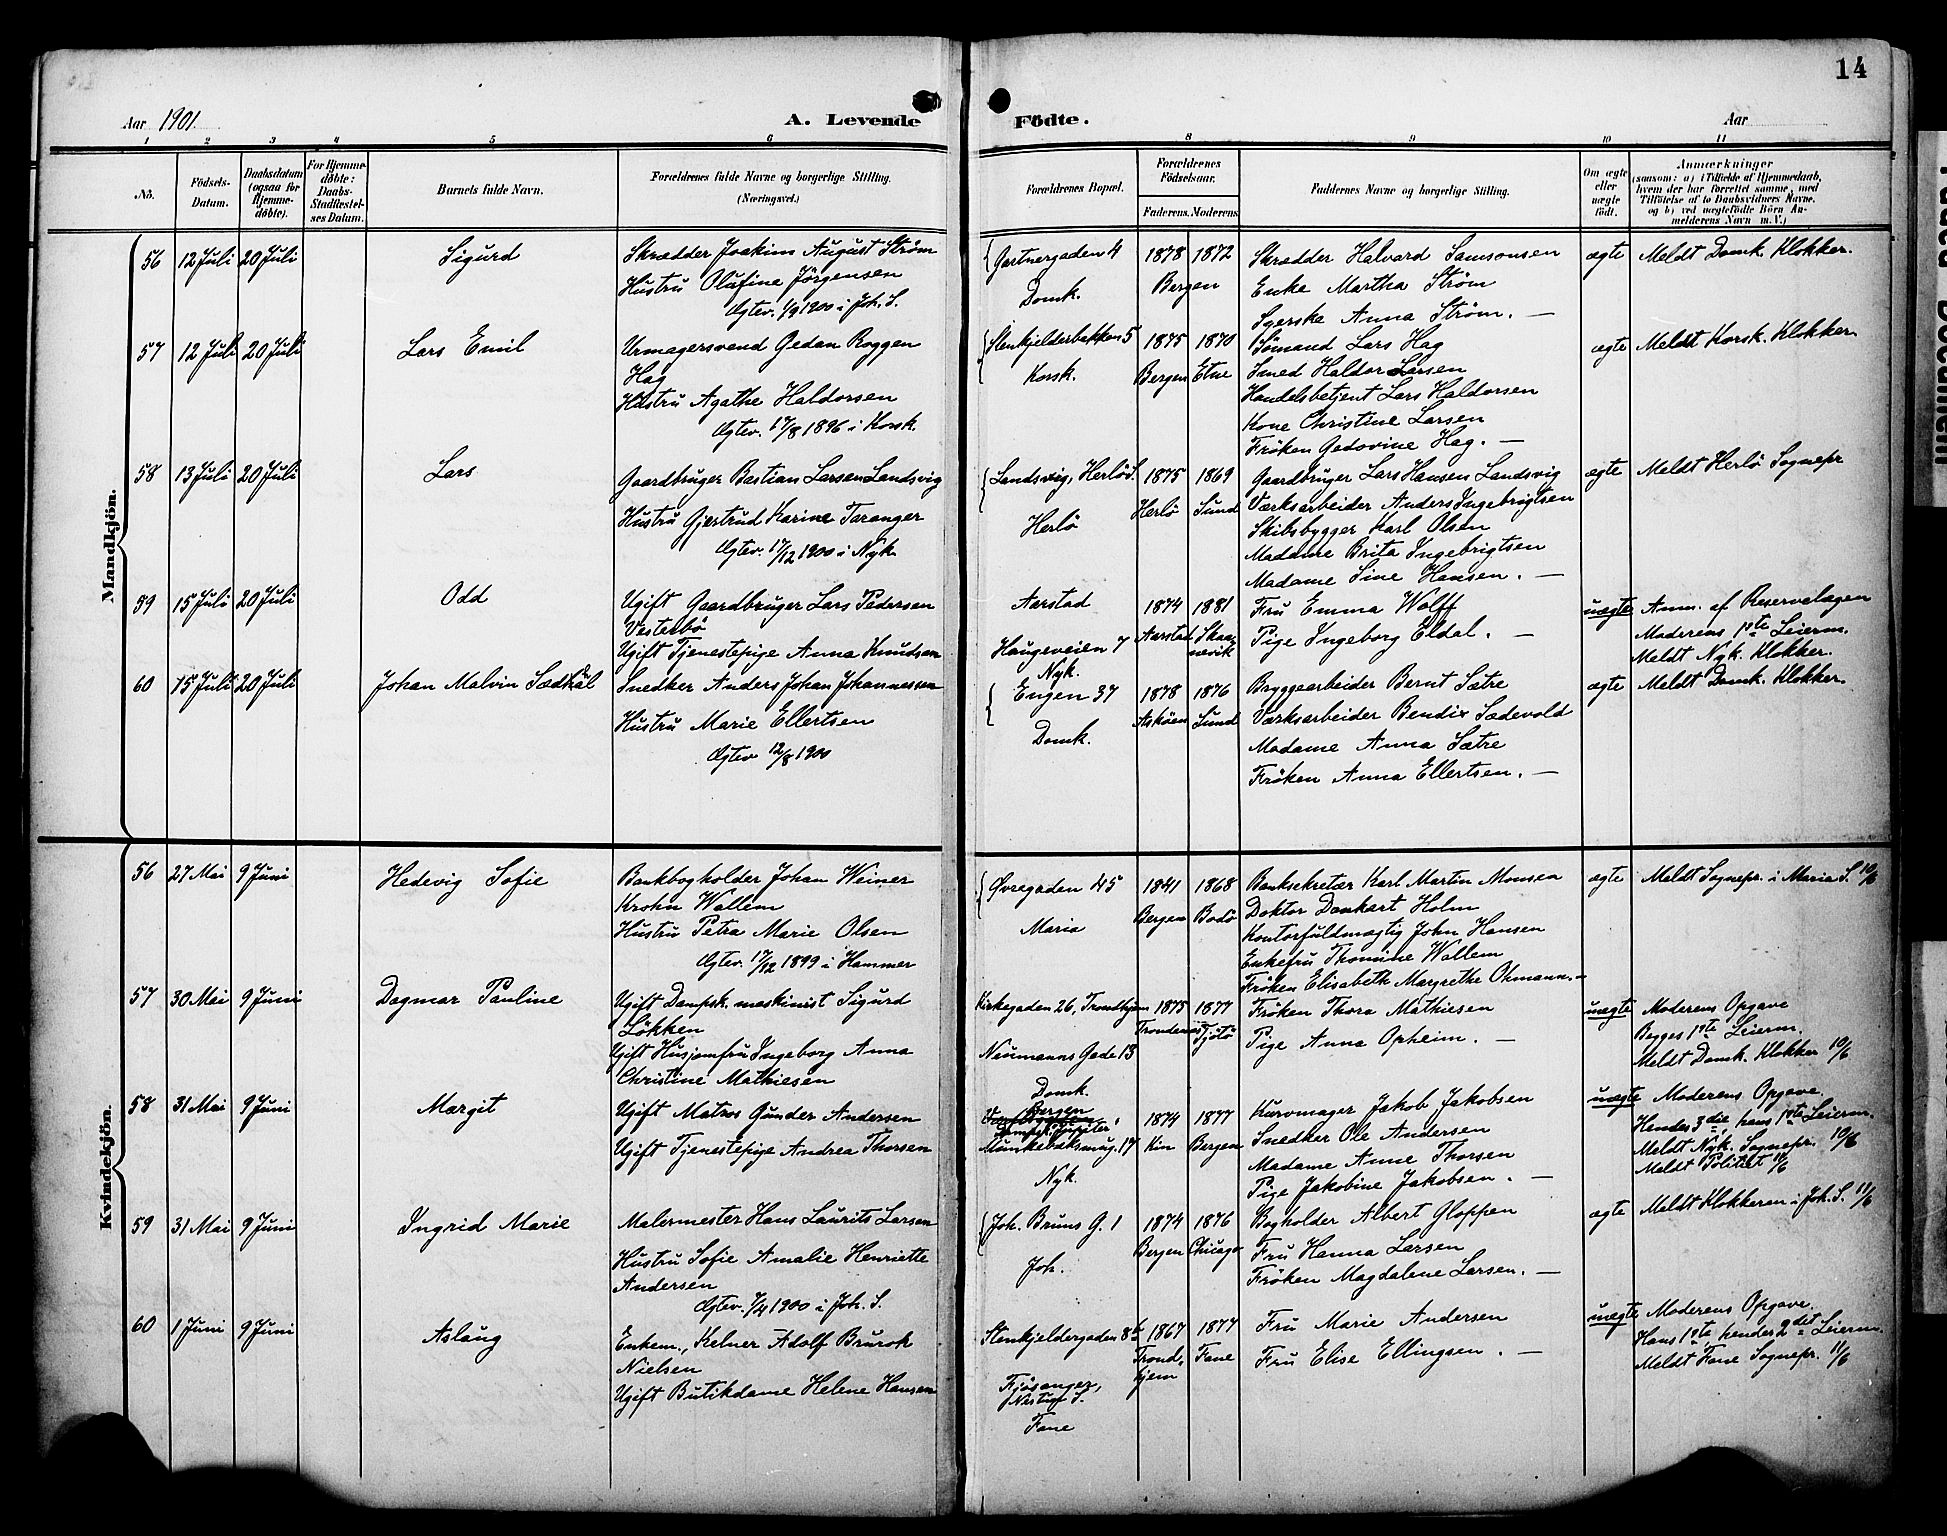 14
Aar 1901
A. Levende Födte.
Aar
1 2 3 4 5 6 8 9 10 11
No.
Födsels-Datum.
Daabsdatum (ogsaa for Hjemmedøbte).
For Hjemmedøbte: Daabs-Stadfæstelses Datum.
Barnets fulde Navn.
Forældrenes fulde Navne og borgerlige Stilling. (Næringsvei.)
Forældrenes Bopæl.
Forældrenes Födselsaar.
Faderens. Moderens.
Faddernes Navne og borgerlige Stilling.
Om ægte eller uægte født.
Anmærkninger (saasom: a) i Tilfælde af Hjemmedaab, hvem der har forrettet samme, med Tilføielse af to Daabsvidners Navne, og b) ved uægtefödte Börn Anmelderens Navn m. V.)
Mandkjön.
56 12 Juli 20 Juli Sigurd
Skrædder Joakim August Strøm
Hustru Olufine Jörgensen
Ægtev. 1/9 1900 i Joh. S.
Gartnergaden 4
Domk.
1878 1872
Bergen
Skrædder Halvard Samsonsen
Enke Martha Strøm
Syerske Anna Strøm. —
ægte
Meldt Domk. Klokker.
57 12 Juli 20 Juli Lars Emil
Urmagersvend Gedan Roggen
Hag
Hustru Agathe Haldorsen
Ægtev. 17/8 1896 i Korsk.
Stenkjelderbakken 5
Korsk.
1875 1870
Bergen Etne
Sömand Lars Hag
Smed Haldor Larsen
Handelsbetjent Lars Haldorsen
Kone Christine Larsen
Fröken Gedovine Hag. —
ægte
Meldt Korsk. Klokker.
58 13 Juli 20 Juli Lars
Gaardbruger Bastian Larsen Landsvig
Hustru Gjertrud Karine Taranger
Ægtev. 17/12 1900 i Nyk.
Landsvig, Herlö S.
Herlö
1875 1869
Herlö Sund
Gaardbruger Lars Hansen Landsvig
Værksarbeider Anders Ingebrigtsen
Skibsbygger Karl Olsen
Madame Brita Ingebrigtsen
Madame Sine Hansen. —
ægte
Meldt Herlö Sognepr
59 15 Juli 20 Juli Odd
Ugift Gaardbruger Lars Pedersen
Vesterbö
Ugift Tjenestepige Anna Knudsen
Aarstad
Haugeveien 7
Nyk.
1874 1881
Aarstad Skaanevik
Fru Emma Wolff
Pige Ingeborg Eldal. —
uægte
Anm. af Reservelægen
Moderens 1ste Leierm.
Meldt Nyk. Klokker.
60 15 Juli 20 Juli Johan Malvin Sædkål
Snedker Anders Johan Johannessen
Hustru Marie Ellertsen
Ægtev 12/8 1900
Engen 37
Domk.
1878 1876
Askøen Sund
Bryggearbeider Bernt Sætre
Værksarbeider Bendix Sædevold
Madame Anna Sætre
Fröken Anna Ellertsen. —
ægte
Meldt Domk. Klokker.
Kvindekjön.
56 27 Mai 9 Juni Hedevig Sofie
Bankbogholder Johan Weiner
Krohn Wallem
Hustru Petra Marie Olsen
Ægtev. 17/12 1899 i Hammer
Øvregaden 45
Maria
1841 1868
Bergen Bodö
Banksekretær Karl Martin Monsen
Doktor Dankart Holm
Kontorfuldmægtig John Hansen
Enkefru Thomine Wallem
Fröken Elisabeth Margrethe Ohmann. —
ægte
Meldt Sognepr. i Maria S. 10/6
57 30 Mai 9 Juni Dagmar Pauline
Ugift Dampsk. maskinist Sigurd
Lökken
Ugift Husjomfru Ingeborg Anna
Christine Mathiesen
Kirkegaden 26, Trondhjem
Neumanns Gade 13
Domk.
1875 1877
Trondenæs Tjötö
Fröken Thora Mathiesen
Pige Anna Opheim. —
uægte
Moderens Opgave
Begges 1ste Leierm.
Meldt Domk. Klokker 10/6
58 31 Mai 9 Juni Margit
Ugift Matros Gunder Andersen
Ugift Tjenestepige Andrea Thorsen
Bergen
Dampsk. "Jupiter"
Munkebæksmug. 17
Nyk.
1874 1877
Kin Bergen
Kurvmager Jakob Jakobsen
Snedker Ole Andersen
Madame Anne Thorsen
Pige Jakobine Jakobsen. —
uægte
Moderens Opgave
Hendes 3die hans 1ste Leierm.
Meldt Nyk. Sognepr. 10/6
Meldt Politiet 11/6
59 31 Mai 9 Juni Ingrid Marie
Malermester Hans Laurits Larsen
Hustru Sofie Amalie Henriette
Andersen
Ægtev. 7/4 1900 i Joh. S.
Joh. Bruns G. 1
Joh.
1874 1876
Bergen Chicago
Bogholder Albert Gloppen
Fru Hanna Larsen
Fröken Magdalene Larsen. —
ægte
Meldt Klokkeren i Joh. S. 11/6
60 1 Juni 9 Juni Aslaug
Enkem., Kelner Adolf Brurok
Nielsen
Ugift Butikdame Helene Hansen
Stenkjeldergaden 8b
Fjösanger,
Fane
1867 1877
Trondhjem Fane
Fru Marie Andersen
Fru Elise Ellingsen. —
uægte
Moderens Opgave.
Hans 1ste hendes 2det Leierm.
Meldt Fane Sognepr. 11/6